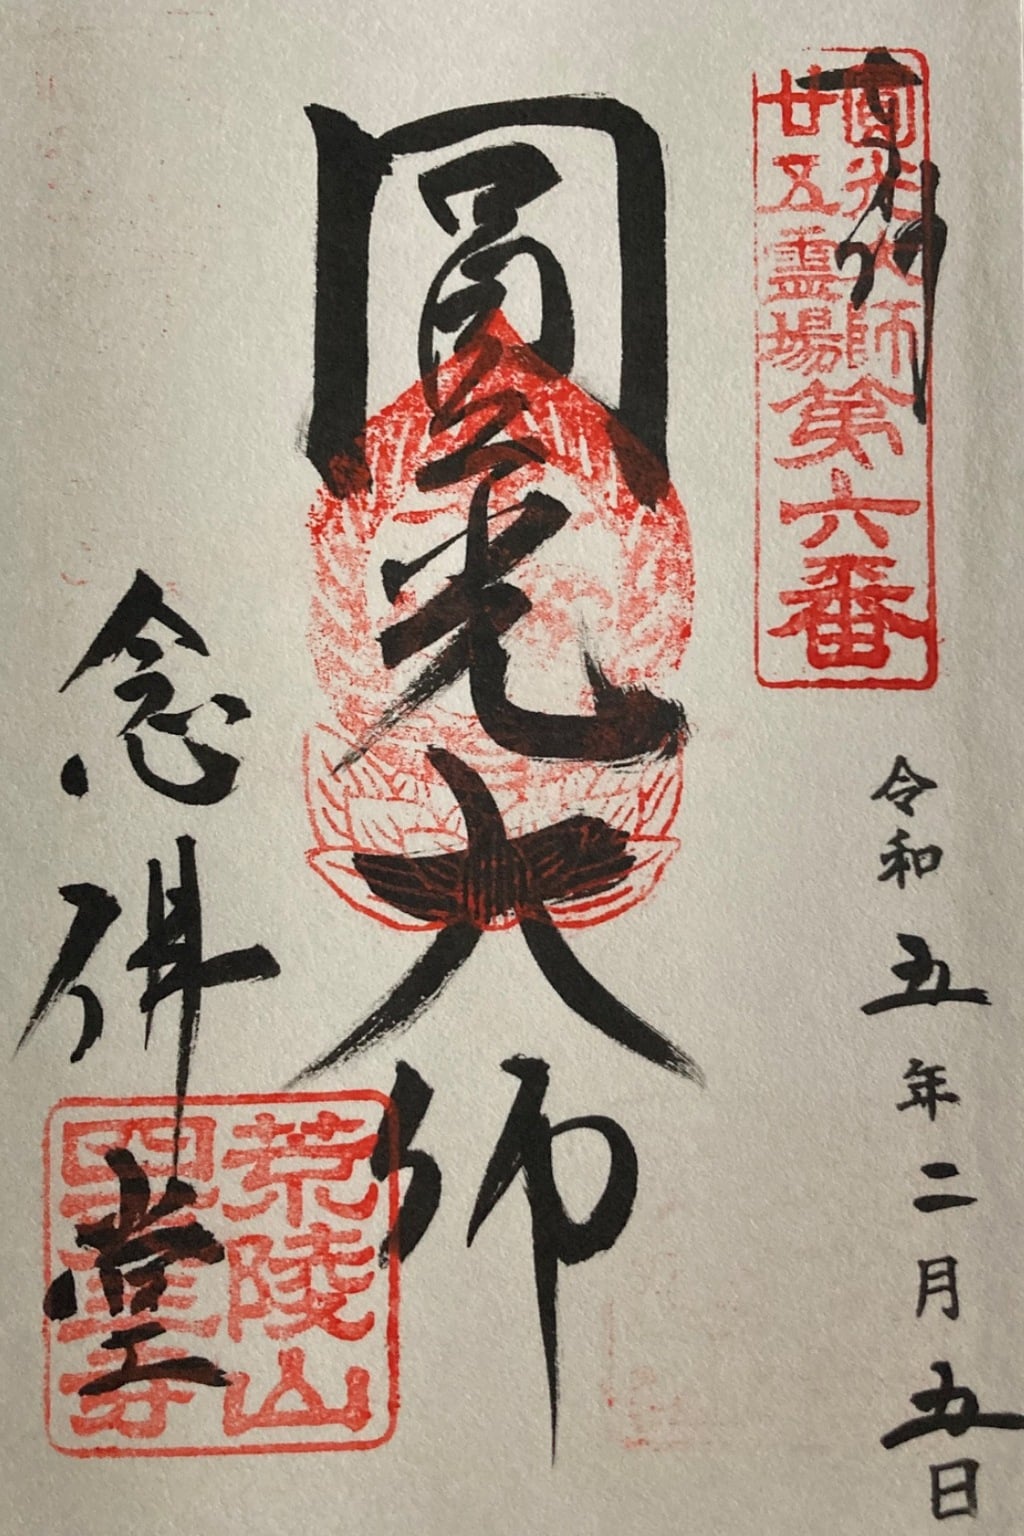 奉拝
圓光大師
廿五霊場
第六番
令和五年二月五日
圓光大師
念佛堂
荒陵山
四天王寺